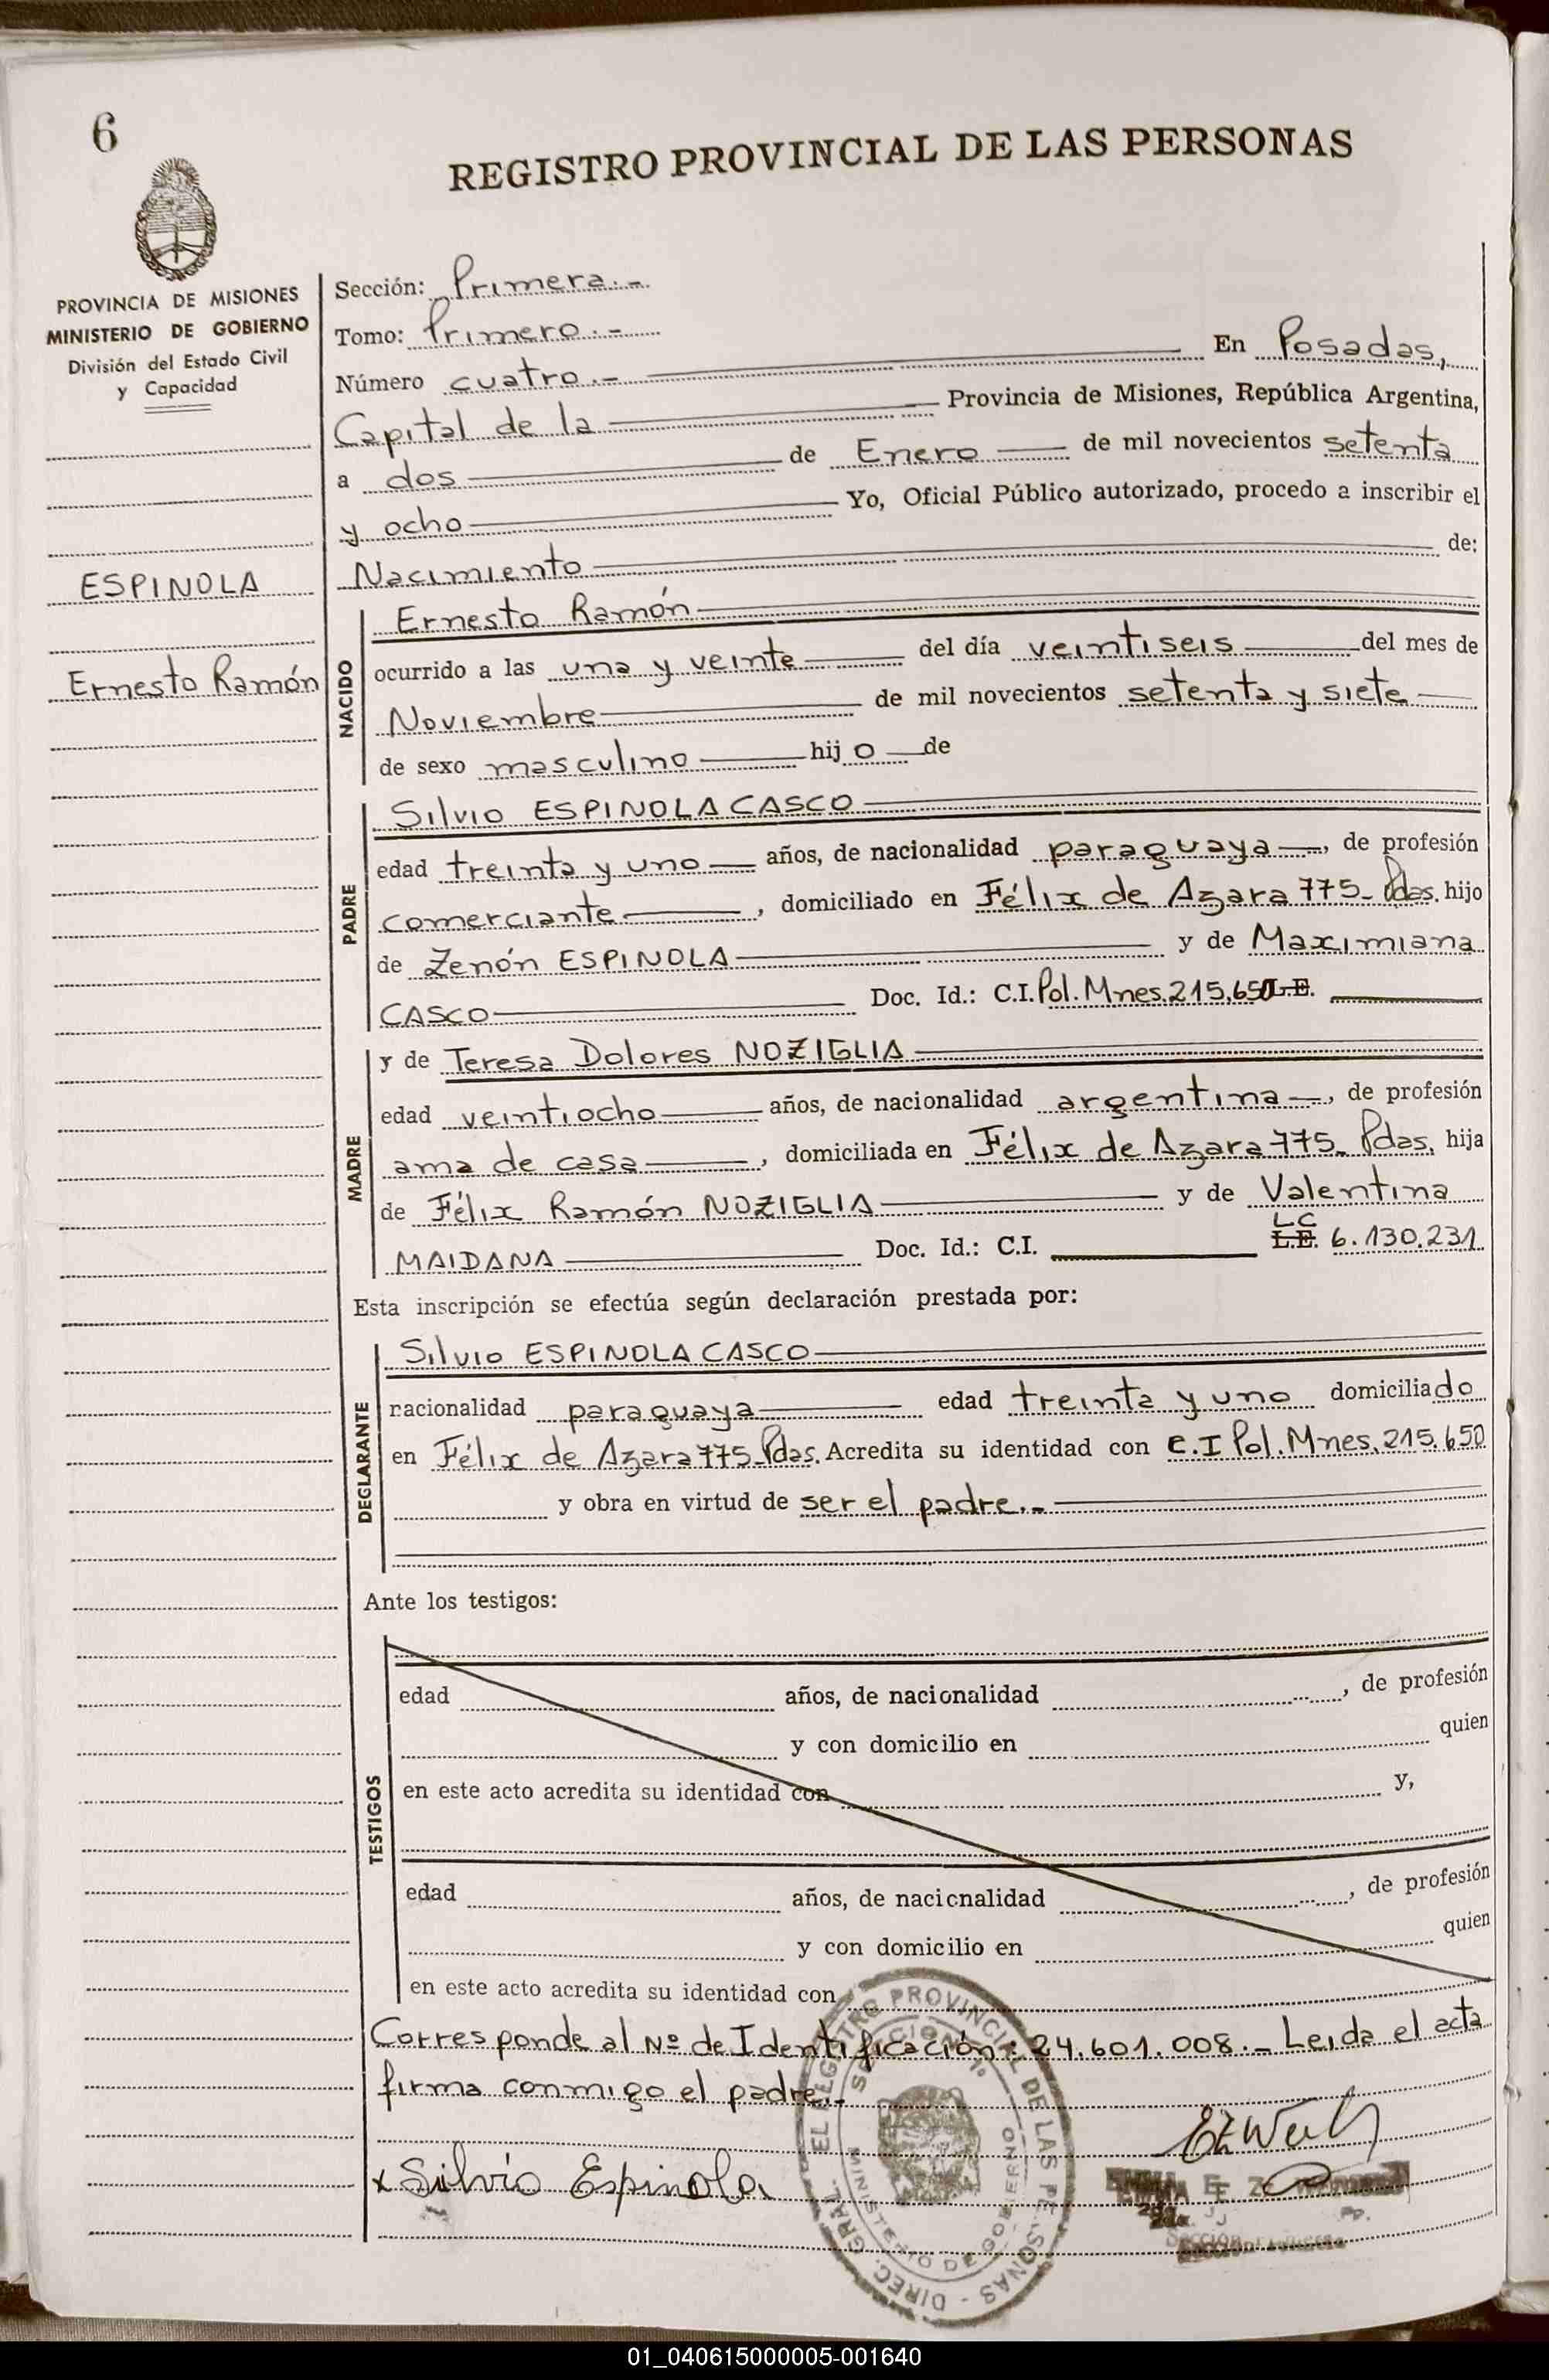 6
REGISTRO PROVINCIAL DE LAS PERSONAS
PROVINCIA DE MISIONES
MINISTERIO DE GOBIERNO
División del Estado Civil
y Capacidad
ESPINOLA
Ernesto Ramón
Sección: Primera.-
Tomo: Primero.-
Número cuatro.- En Posadas,
Capital de la Provincia de Misiones, República Argentina,
a dos de Enero de mil novecientos setenta
y ocho Yo, Oficial Público autorizado, procedo a inscribir el
Nacimiento de:
NACIDO
Ernesto Ramón
ocurrido a las una y veinte del día veintiseis del mes de
Noviembre de mil novecientos setenta y siete
de sexo masculino hijo de
PADRE
Silvio ESPINOLA CASCO
edad treinta y uno años, de nacionalidad paraguaya, de profesión
comerciante, domiciliado en Félix de Azara 775- Pdas. hijo
de Zenón ESPINOLA y de Maximiana
CASCO Doc. Id.: C.I. Pol. Mnes. 215.650 L.E.
MADRE
y de Teresa Dolores NOZIGLIA
edad veintiocho años, de nacionalidad argentina, de profesión
ama de casa, domiciliada en Félix de Azara 775- Pdas, hija
de Félix Ramón NOZIGLIA y de Valentina
MAIDANA Doc. Id.: C.I. L.E. LC 6.130.231
Esta inscripción se efectúa según declaración prestada por:
DECLARANTE
Silvio ESPINOLA CASCO
racionalidad paraguaya edad treinta y uno domiciliado
en Félix de Azara 775- Pdas. Acredita su identidad con C.I Pol. Mnes. 215.650
y obra en virtud de ser el padre.-
Ante los testigos:
TESTIGOS
edad años, de nacionalidad , de profesión
y con domicilio en quien
en este acto acredita su identidad con y,
edad años, de nacicnalidad , de profesión
y con domicilio en quien
en este acto acredita su identidad con
Corresponde al Nº de Identificación: 24.601.008.- Leida el acta
firma conmigo el padre.-
x Silvio Espinola
DIREC. GRAL. EL REGISTRO PROVINCIAL DE LAS PERSONAS
SECCION 1º
MINISTERIO DE GOBIERNO
01_040615000005-001640